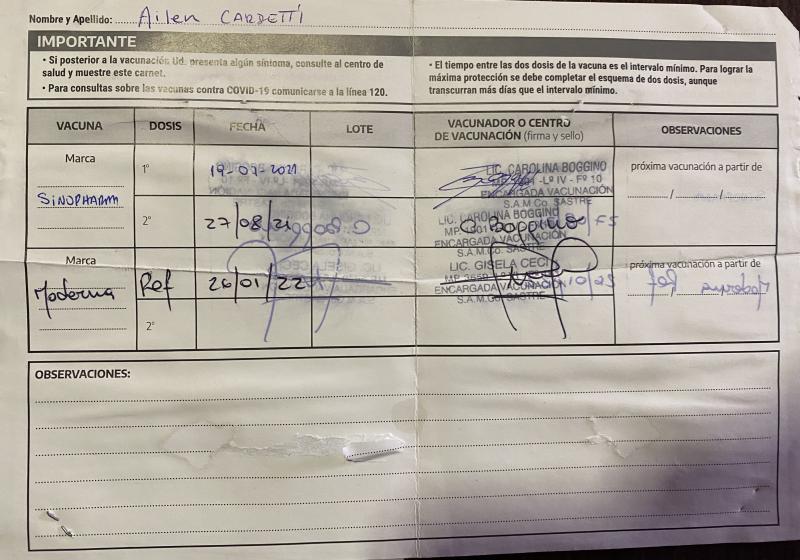 Nombre y Apellido: Ailen CARDETTI
IMPORTANTE
• Si posterior a la vacunación Ud. presenta algún síntoma, consulte al centro de
salud y muestre este carnet.
• Para consultas sobre las vacunas contra COVID-19 comunicarse a la línea 120.
• El tiempo entre las dos dosis de la vacuna es el intervalo mínimo. Para lograr la
máxima protección se debe completar el esquema de dos dosis, aunque
transcurran más días que el intervalo mínimo.
VACUNA DOSIS FECHA LOTE VACUNADOR O CENTRO DE VACUNACIÓN (firma y sello) OBSERVACIONES
Marca
SINOPHARM
1°
19-07-2021
LIC. CAROLINA BOGGINO
-Lº IV - Fº 10
ENCARGADA VACUNACIÓN
S.A.M Co. SASTRE
próxima vacunación a partir de
/ /
2°
27/08/21
LIC. CAROLINA BOGGINO
ENCARGADA VACUNACIÓN
S.A.M.Co. SASTRE
Marca
Moderna
Ref
26/01/22
LIC. GISELA CECI
ENCARGADA VACUNACIÓN
S.A.M.Co. SASTRE
próxima vacunación a partir de
2°
OBSERVACIONES: